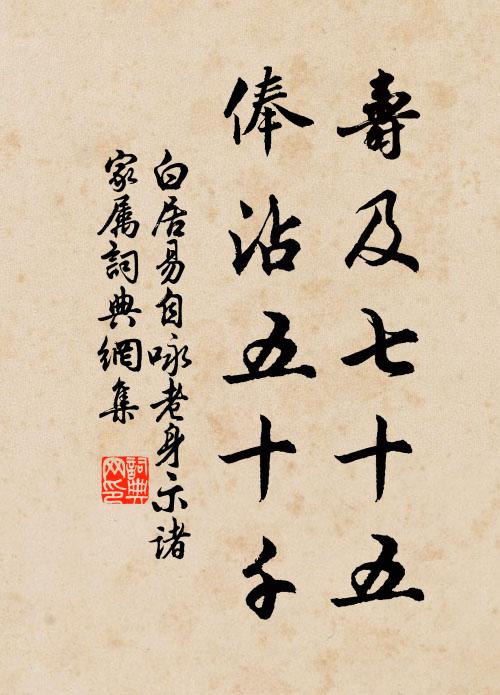 壽及七十五
俸沾五十千
白居易自詠老身示諸
家属詞典網集
詞典
网印